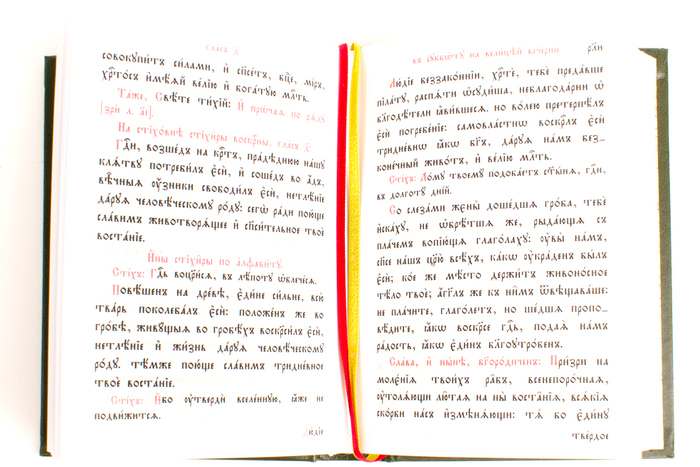 Гласъ д҃.
совокꙋпитъ си́лами, и҆ сп҃се́тъ, бж҃е, мі́ръ,
хрⷭ҇то́съ и҆мѣ́ѧй ве́лїю и҆ бога́тꙋю млⷭ҇ть.
Та́же, Свѣ́те ти́хїй: И҆ прѡ́чаѧ по рѧ́дꙋ
На стїхо́внѣ стїхи̑ры воскрⷭ҇ны, гла́съ д҃.
Гдⷭ҇и, возше́дъ на крⷭ҇тъ, пра́дѣднюю на́шꙋ
клѧ́твꙋ потреби́лъ є҆сѝ, и҆ соше́дъ во а҆́дъ,
вѣ̑чныѧ ᲂу҆́зники свободи́лъ є҆сѝ, нетлѣ́нїе
да́рꙋѧ человѣ́ческомꙋ ро́дꙋ: сегѡ̀ ра́ди пою́ще
сла́вимъ животворѧ́щее и҆ сп҃си́тельное твоѐ
воста́нїе.
И҆́ны стїхи̑ры по а҆лфави́тꙋ.
Стїхъ: Гдⷭ҇ь воцр҃и́сѧ, въ лѣ́потꙋ ѡ҆блече́сѧ.
Повѣ́шенъ на дре́вѣ, є҆ди́не си́льне, всю̀
тва́рь поколеба́лъ є҆сѝ: положе́нъ же во
гро́бѣ, живꙋ́щыѧ во гробѣ́хъ воскр҃си́лъ є҆сѝ,
нетлѣ́нїе и҆ жи́знь да́рꙋѧ человѣ́ческомꙋ
ро́дꙋ. тѣ́мже пою́ще сла́вимъ триднѐвное
твоѐ воста́нїе.
Стїхъ: И҆́бо ᲂу҆твердѝ вселе́ннꙋю, ꙗ҆́же не
подви́житсѧ.
Лю́дїе
въ сꙋббѡ́тꙋ на вели́цѣй вече́рни.
Лю́дїе беззако́ннїи, хрⷭ҇тѐ, тебѐ преда́вше
пїла́тꙋ, распѧ́ти ѡ҆сꙋди́ша, неблагода́рни ѡ҆
бл҃годѣ́тели ꙗ҆ви́вшесѧ. но во́лею претерпѣ́лъ
є҆сѝ погребе́нїе: самовла́стнѡ воскр҃лъ є҆сѝ
триднѐвнѡ ꙗ҆́кѡ бг҃ъ, да́рꙋѧ на́мъ без-
коне́чный живо́тъ, и҆ ве́лїю млⷭ҇ть.
Стїхъ: До́мꙋ твоемꙋ̀ подоба́етъ ст҃ы́нѧ, гдⷭ҇и,
въ долготꙋ̀ дні́й.
Со слеза́ми жєны̀ доше́дшѧ гро́ба, тебѐ
и҆ска́хꙋ, не ѡ҆брѣ́тшѧ же, рыда́ющѧ съ
пла́чемъ вопїю́щѧ глаго́лахꙋ: ᲂу҆вы̀ на́мъ,
сп҃се на́шъ цр҃ю̀ всѣ́хъ, ка́кѡ ᲂу҆кра́денъ бы́лъ
є҆сѝ; ко́е же мѣ́сто держи́тъ живоно́сное
тѣ́ло твоѐ; а҆́гг҃лъ же къ ни̑мъ ѿвѣщава́ше:
не пла́чите, глаго́летъ, но ше́дшѧ пропо-
вѣ́дите, ꙗ҆́кѡ воскр҃се гдⷭ҇ь, подаѧ̀ на́мъ
ра́дость, ꙗ҆́кѡ є҆ди́нъ бл҃гоꙋтро́бенъ.
Сла́ва, и҆ ны́нѣ, бг҃оро́диченъ: При́зри на
молє́нїѧ твои́хъ ра̑бъ, всенепоро́чнаѧ,
ᲂу҆толѧ́ющи лю̑таѧ на ны̀ воста̑нїѧ, всѧ́кїѧ
ско́рби на́съ и҆змѣнѧ́ющи: тѧ́ бо є҆ди́нꙋ
твє́рдое